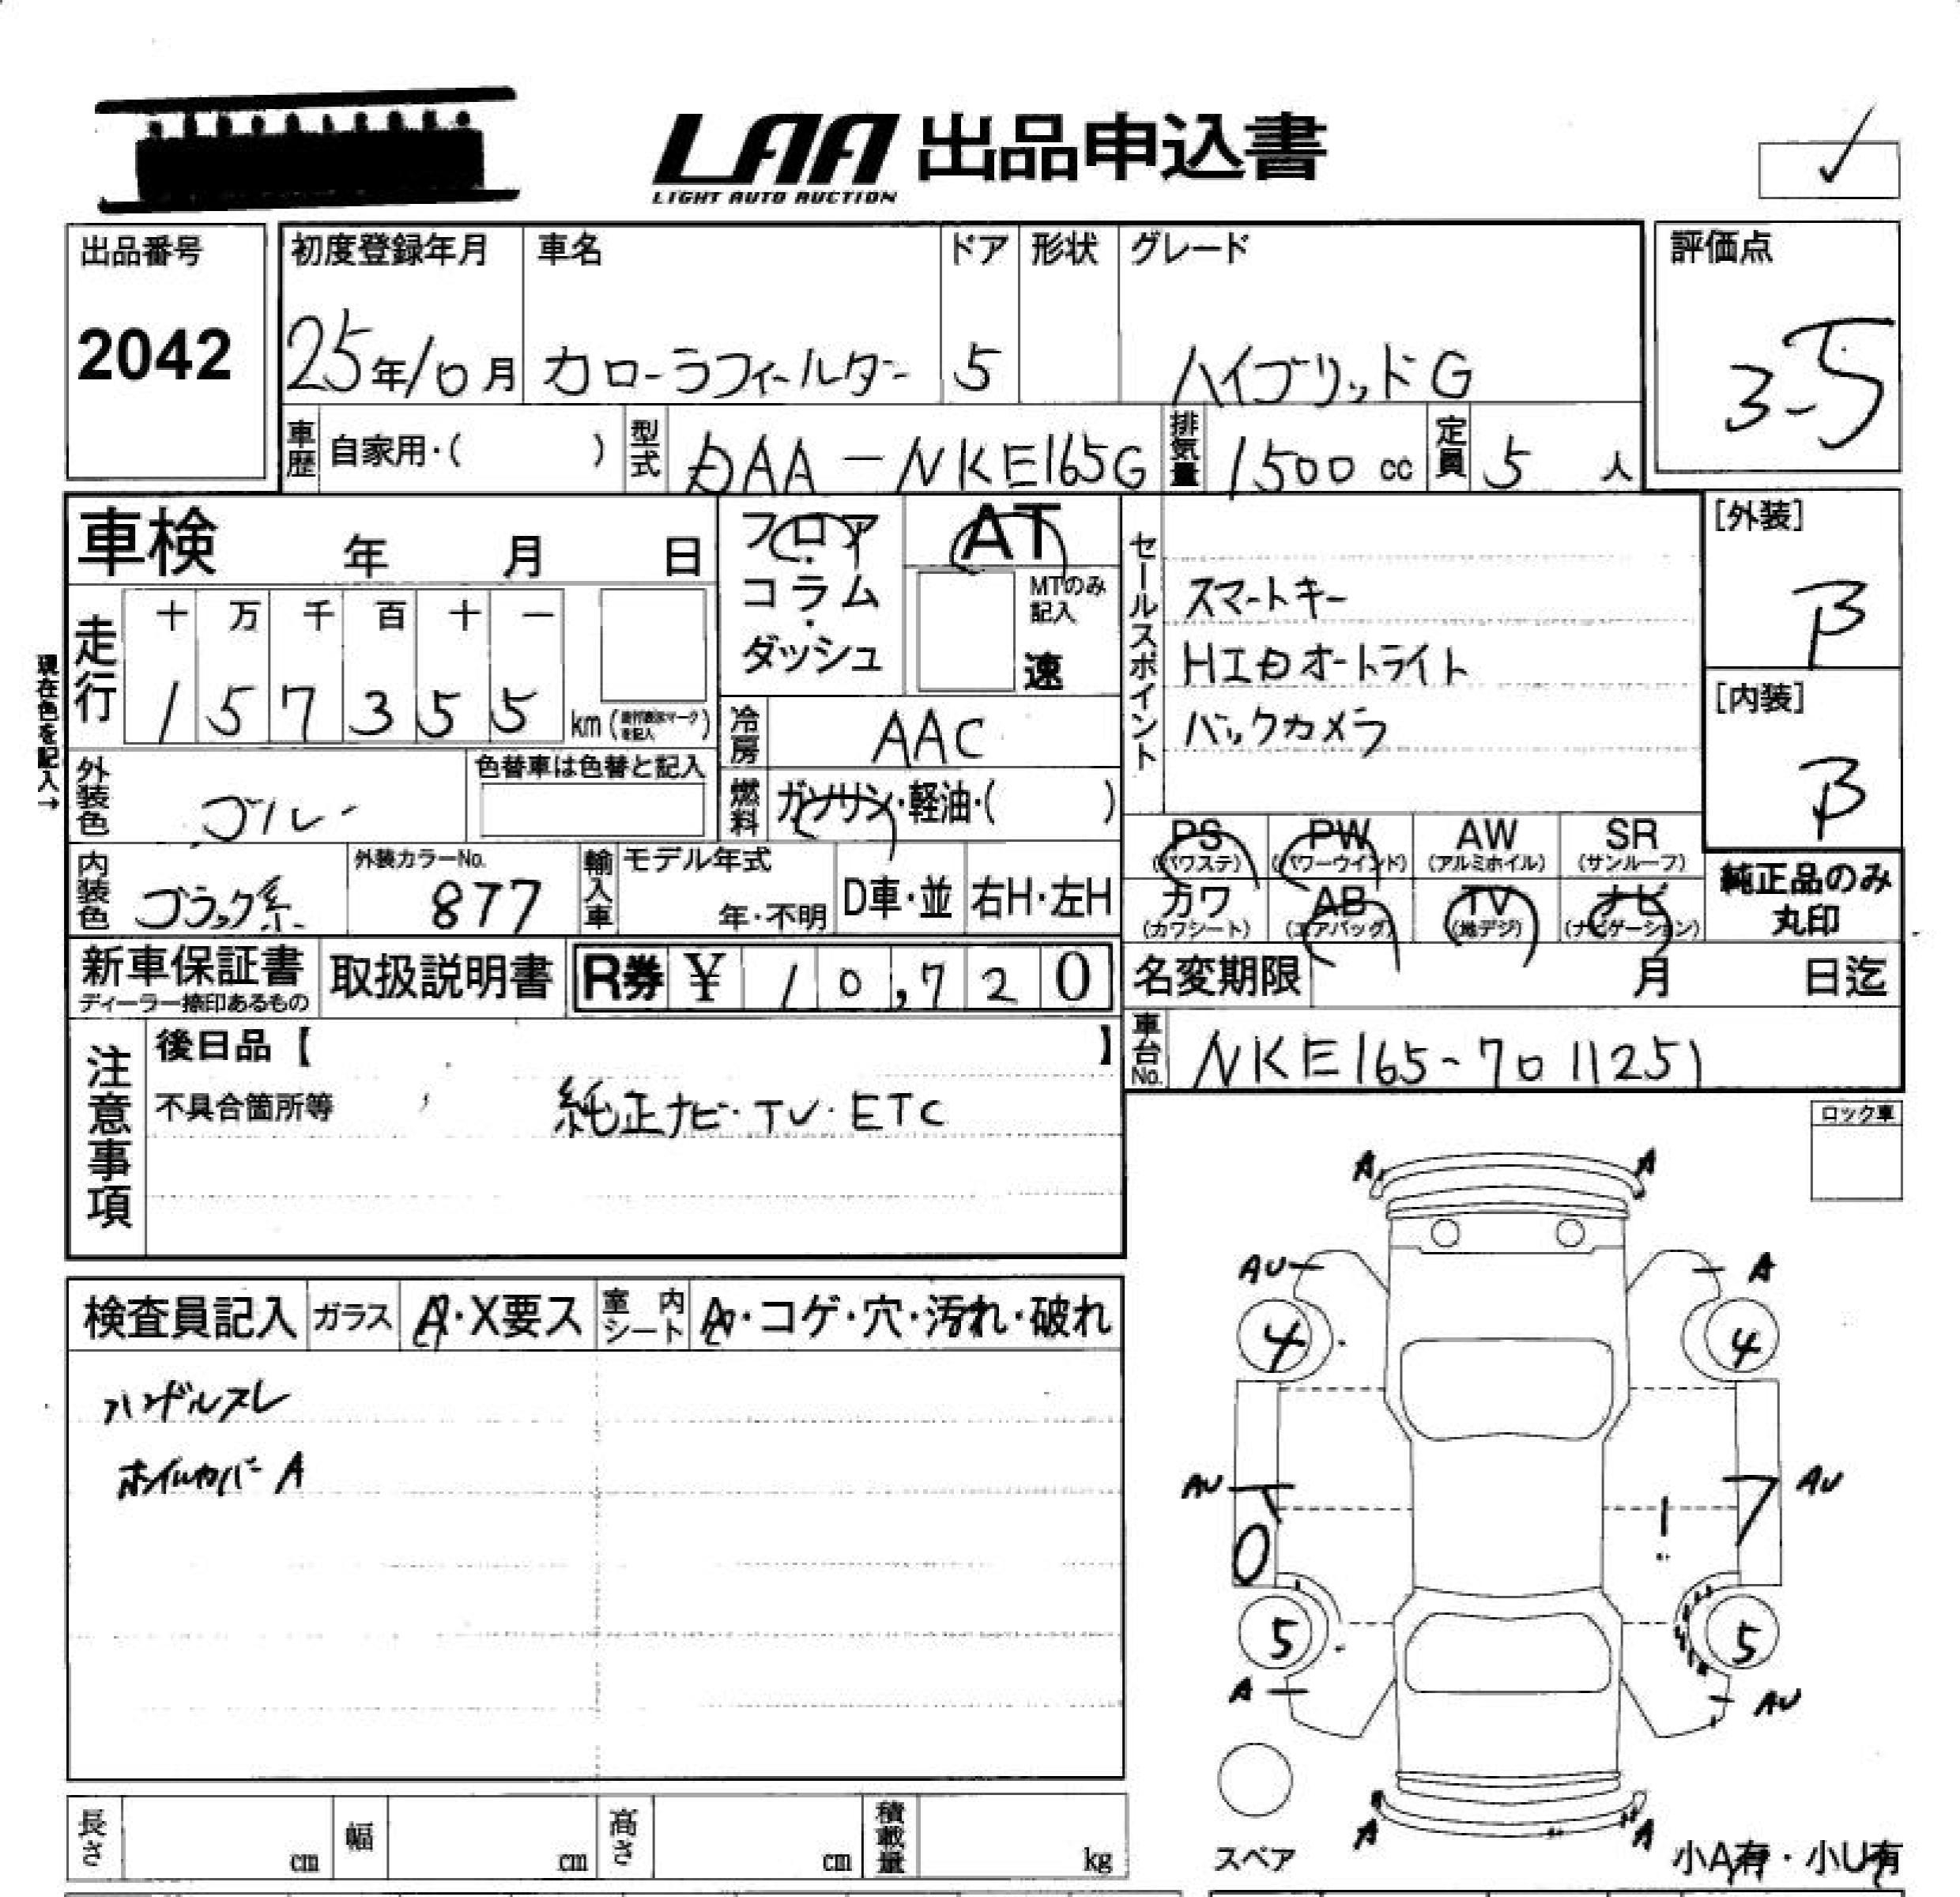 LAA 出品申込書
LIGHT AUTO AUCTION
出品番号
2042
初度登録年月
25年10月
車名
カローラフィールダー
ドア
5
形状
グレード
ハイブリッドG
評価点
3-5
車歴
自家用・( )
型式
DAA-NKE165G
排気量
1500 cc
定員
5 人
車検 年 月 日
フロア・コラム・ダッシュ
AT
MTのみ記入
速
セールスポイント
スマートキー
HIDオートライト
バックカメラ
[外装]
B
[内装]
B
現在色を記入→
走行
十 万 千 百 十 一
1 5 7 3 5 5
km
冷房
AAC
外装色
ブルー
色替車は色替と記入
燃料
ガソリン・軽油・( )
PS
(パワステ)
PW
(パワーウインド)
AW
(アルミホイル)
SR
(サンルーフ)
内装色
ブラック系
外装カラーNo.
877
輸入車
モデル年式
年・不明
D車・並
右H・左H
カワ
(カワシート)
AB
(エアバッグ)
TV
(地デジ)
ナビ
(ナビゲーション)
純正品のみ
丸印
新車保証書
ディーラー捺印あるもの
取扱説明書
R券 ¥ 10,720
名変期限 月 日迄
車台No.
NKE165-7011251
注意事項
後日品【 】
不具合箇所等
純正ナビ・TV・ETC
ロック車
A A
AU A
4 4
検査員記入
ガラス
A・X要ス
室内シート
A・コゲ・穴・汚れ・破れ
ハンドルスレ
ホイルカバーA
AU AU
5 5
A AU
A A
スペア
小A有・小U有
長さ cm
幅 cm
高さ cm
積載量 kg